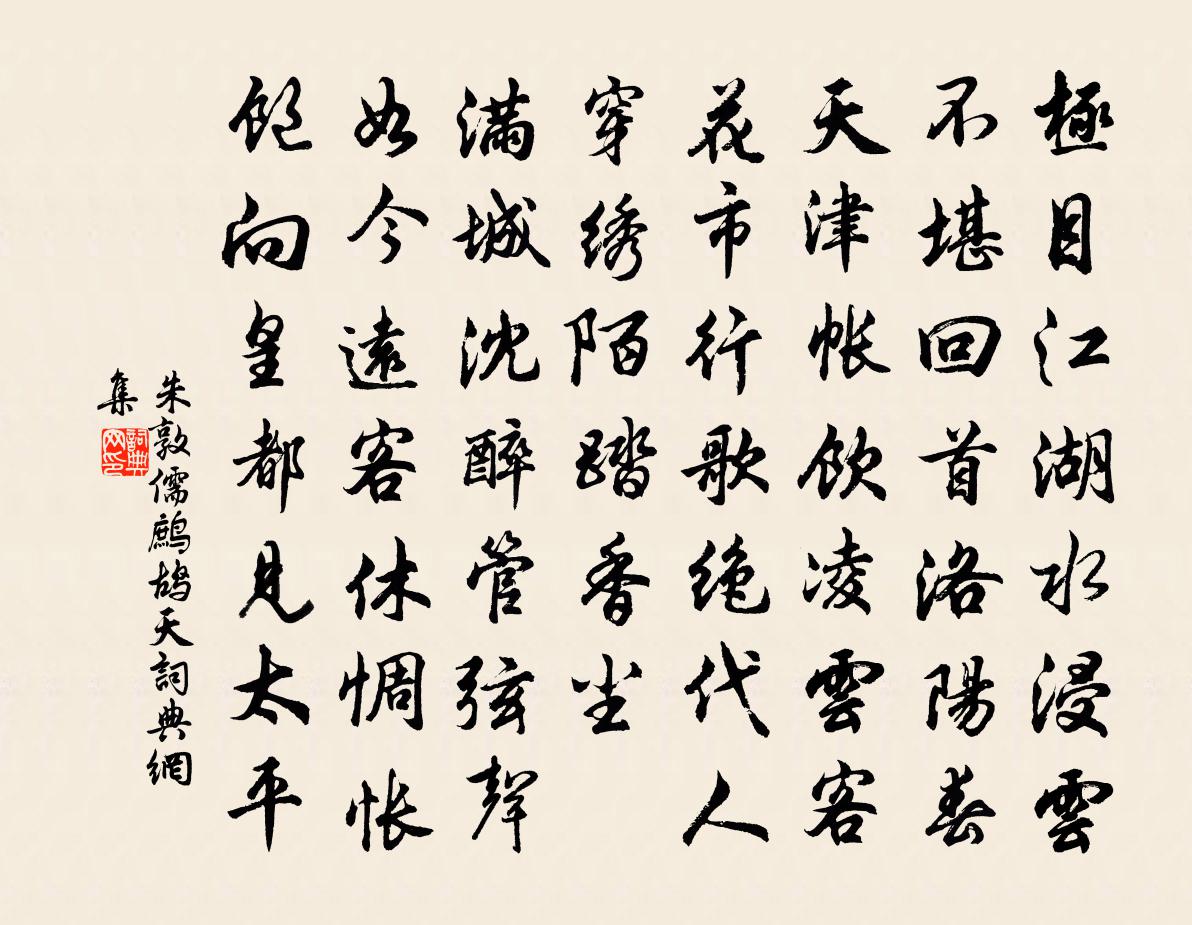 極目江湖水浸雲
不堪回首洛陽春
天津帳飲凌雲客
花市行歌絶代人
穿綉陌踏香尘
滿城沈醉管弦聲
如今遠客休惆悵
飽向皇都見太平
朱敦儒鷓鴣天詞典網
集
詞典
网印